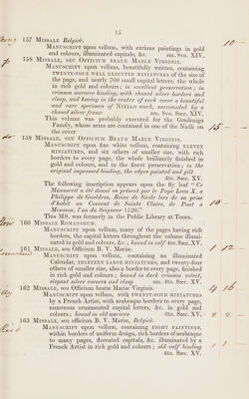 15
157 MISSALE Belgicè.
MANUSCRIPT upon vellum, with curious paintings in gold
and colours, illuminated capitals, &c. SÆC. XIV.
158 MISSALE, SEU OFFICIUM BEATÆ MARIÆ VIRGINIS.
MANUSCRIPT upon vellum, beautifully written, containing
TWENTY-FOUR WELL EXECUTED MINIATURES of the size of the
page, and nearly 700 small capital letters, the whole
in rich gold and colours; in excellent preservation; in
crimson morocco binding, with chased silver borders and
clasp, and having in the centre of each cover a beautiful
and rare specimen of Niellan work, surrounded by a
chased silver frame SÆC. XIV.
This volume was probably executed for the Gondrago
Family, whose arms are contained in one of the Nielli on
the cover 15
159 MISSALE, SEU OFFICIUM BEATÆ MARIÆ VIRGINIS.
MANUSCRIPT upon fine white vellum, containing ELEVEN
MINIATURES, and six others of smaller size, with rich
borders to every page, the whole brilliantly finished in
gold and colours, and in the finest preservation; in the
original impressed binding, the edges painted and gilt
4to. SÆC. XV.
The following inscription appears upon the fly leaf "Ce
Manuscrit a été donné en présent par le Pape Leon X. à
Philippe de Gueldres, Reine de Sicile lors de sa prise
d'habit au Couvent de Sainte Claire, de Pont a
Mousson, l'an du Seigneur 1520."
This MS. was formerly in the Public Library at Tours.
160 MISSALE ROMANUM.
MANUSCRIPT upon vellum, many of the pages having rich
borders, the capital letters throughout the volume illumi-
nated in gold and colours, &c.; bound in calf 4to. SÆC. XV.
161 MISSALE, seu Officium B. V. Mariæ.
MANUSCRIPT upon vellum, containing an illuminated
Calendar, THIRTEEN LARGE MINIATURES, and twenty-four
others of smaller size, also a border to every page, finished
in rich gold and colours; bound in dark crimson velvet,
elegant silver corners and clasp SM. 4to. SÆC. XV.
162 MISSALE, seu Officium beatæ Mariæ Virginis.
MANUSCRIPT upon vellum, with TWENTY-FOUR MINIATURES
by a French Artist, with arabesque borders to every page,
numerous ornamental capital letters, &c. in gold and
colours; bound in old morocco 4to. SÆC. XV.
163 MISSALE, seu officium B. V. Mariæ, Belgicè.
MANUSCRIPT upon vellum, containing EIGHT PAINTINGS,
within borders of uniform design, rich borders of arabesque
to many pages, decorated capitals, &c. illuminated by a
French Artist in rich gold and colours; old calf binding
4to. SÆC. XV.